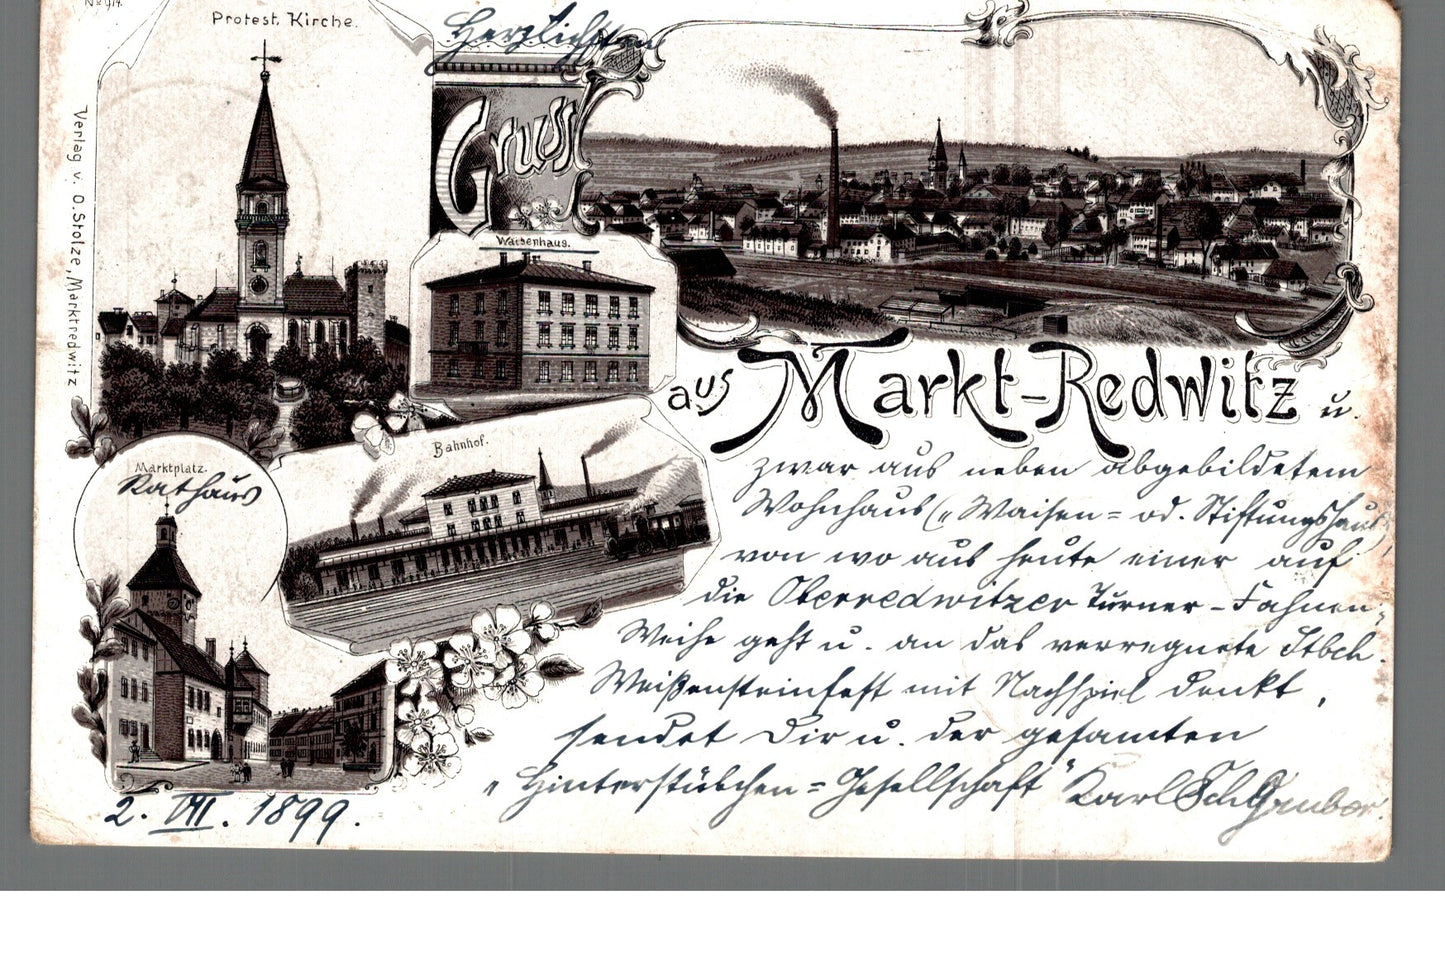 No 914.
Protest. Kirche.
Verlag v. O. Stolze, Marktredwitz
Herzlichsten
Gruss
Waisenhaus.
aus Markt-Redwitz u.
Bahnhof.
Marktplatz.
Rathaus
zwar aus neben abgebildetem
Wohnhaus („Waisen= od. Stiftungshaus
von wo aus heute einer auf
die Oberredwitzer Turner-Fahnen-
Weihe geht u. an das verregnete
Weißensteinfest mit Nachspiel denkt,
sendet Dir u. der gesamten
„Hinterstübchen=Gesellschaft" Karl Gruber.
2. VII. 1899.